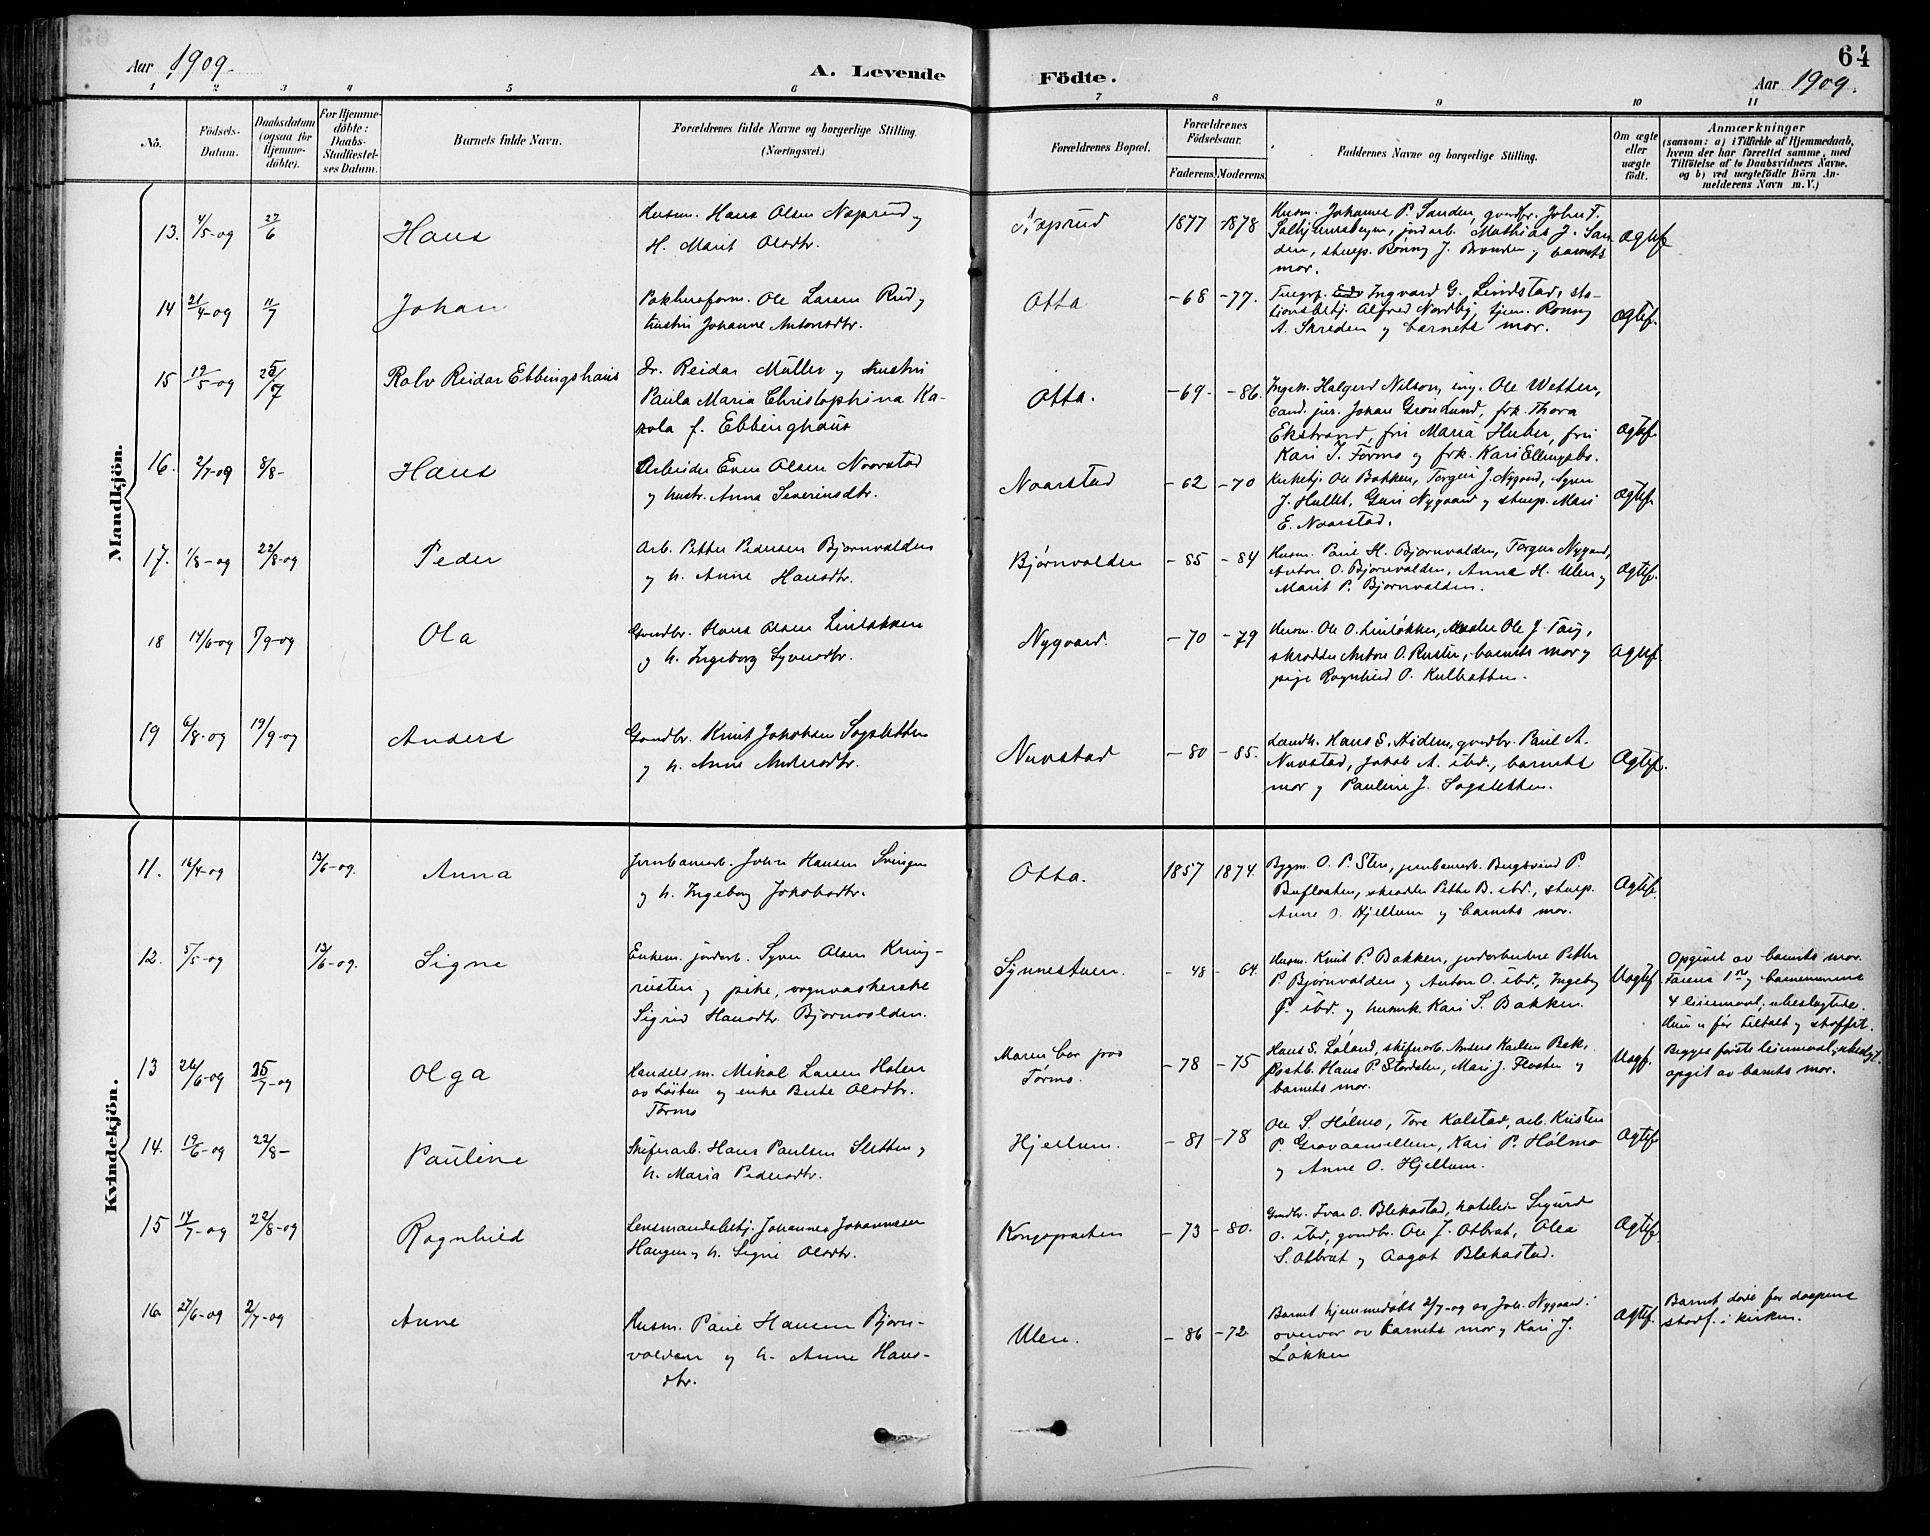 64
Aar 1909.
A. Levende
Födte.
Aar 1909.
1 2 3 4 5 6 7 8 9 10 11
No.
Födsels-
Datum.
Daabsdatum
(ogsaa for
Hjemme-
döbte).
For Hjemme-
döbte:
Daabs-
Stadfæstel-
ses Datum.
Barnets fulde Navn.
Forældrenes fulde Navne og borgerlige Stilling.
(Næringsvei.)
Forældrenes Bopæl.
Forældrenes
Födselsaar.
Faderens. Moderens.
Faddernes Navne og borgerlige Stilling.
Om ægte
eller
uægte
födt.
Anmærkninger
(saasom: a) i Tilfælde af Hjemmedaab,
hvem der har forrettet samme, med
Tilföielse af to Daabsvidners Navne,
og b) ved uægtefödte Börn An-
melderens Navn m. V.)
Mandkjön.
13. 4/5-09 27/6 Hans
Husm. Hans Olsen Næprud og
H. Marit Olsdtr.
Næprud 1877 -1878
Husm. Johannes P. Sanden, gvrdbr. John F.
Mathias J. San-
den, stuep. Rønnøg J. Brenden og barnets
mor.
Ægtef.
14 21/4-09 11/7 Johan
Pakhusform. Ole Larsen Rud og
hustru Johanne Antonsdtr.
Otta -68 -77.
Telegrf. Ingvard G. Lindstad, sta-
tionsbetj. Alfred Nordby, tjen. Rønnøg
A. Skreden og barnets mor.
Ægtef.
15 19/5-09 25/7 Rolv Reidar Ebbingshaus
Dr. Reidar Müller og Hustru
Paula Maria Christophina Ka-
rola f. Ebbinghaus
Otta. -69- -86.
Halgerd Nilson, ing. Ole Wetten,
cand. jur. Johan Grønlund, frk. Thora
Ekstrand, fru Maria Huber, fru
Kari T. Formo og frk. Kari Ellingsbø.
Ægtef.
16. 2/7-09 8/8- Hans
Arbeider Even Olsen Naarstad
og hustr. Anna Severinsdtr.
Naarstad -62 -70
Kirketj. Ole Bakken, Torgeir J. Nygaard, Syver
J. Hullet, Guri Nygaard og stuep. Mari
E. Naarstad.
Ægtef.
17. 1/8-09 22/8-09 Peder
Arb. Petter Pedersen Bjørnvolden
og h. Anne Hansdtr.
Bjørnvolden -85 -84
Husm. Paul H. Bjørnvolden, Torgeir Nygaard,
Anton O. Bjørnvolden, Anna H. Ulen og
Marit P. Bjørnvolden.
Ægtef.
18 14/6-09 7/9-09 Ola
Gaardbr. Hans Olsen Linløkken
og h. Ingeborg Syversdtr.
Nygaard. -70 -79
Husm. Ole O. Linløkken, Maler Ole J. Torg,
skrædder Anton O. Ruster, barnets mor og
pige Ragnhild O. Kulhatten.
Ægtef.
19 6/8-09 19/9-09 Anders
Gaardbr. Knut Jakobsen Sagsletten
og h. Anne Andersdtr.
Nuvstad -80 -85.
Landh. Hans E. Kidem, gvrdbr. Paul A.
Nuvstad, Jakob A. ibd., barnets
mor og Pauline J. Sagsletten.
Ægtef.
Kvindekjön.
11. 16/4-09 13/6-09. Anna
Jernbanearb. John Hansen Svingen
og h. Ingeborg Jakobsdtr.
Otta. 1857 1874.
Bygm. O. P. Sten, jernbanearb. Bergsvend P.
Bufloaten, skrædder Petter B. ibd., stuep.
Anne O. Hjellum og barnets mor.
Ægtef.
12. 5/5-09 13/6-09. Signe
Enkem. jordarb. Syver Olsen Kring-
rusten og pike, vognvaskerske
Sigrid Hansdtr. Bjørnvolden.
Synnestuen. -48- 64.
Husm. Knut P. Bakken, jordarbeidere Petter
P. Bjørnvolden og Anton O. ibd., Ingeborg
P. ibd. og husmk. Kari S. Bakken.
Uægtef
Opgivet av barnets mor.
Farens 1ste og barnemorens
4 leiermaal; ubeslægtede.
Hun er før tiltalt og straffet.
13 26/6-09 25/7-09 Olga
Handelsm. Mikal Larsen Holen
av Løiten og enke Berte Olsdtr.
Formo
Moren bor paa
Formo. -78 -75
Hans S. Løland, skiferarb. Anders Karlsen Bak.,
postb. Hans P. Stordalen, Mari J. Flaaten og
barnets mor.
Uægf.
Begges første leiermaal; ubeslegt.
opgit av barnets mor.
14. 19/6-09 22/8- Pauline
Skiferarb. Hans Paulsen Sletten og
h. Maria Pedersdtr.
Hjellum. -81 -78
Ole S. Holmo, Tore Kolstad, arb. Kristen
P. Gravaamellem, Kari P. Holmo
og Anne O. Hjellum.
Ægtef.
15 14/7-09 22/8-09 Ragnhild
Lensmandsbetj. Johannes Johannessen
Haugen og h. Signe Olsdtr.
Kongsparten -73 -80.
Gaardbr. Ivar O. Blekastad, hotelier Sigurd
O. ibd, gaardbr. Ole J. Otbrat, Olea
S. Otbrat og Aagot Blekastad.
Ægtef.
16. 27/6-09 2/7-09 Anne
Husm. Paul Hansen Bjørn-
volden og h. Anne Hans-
dtr.
Ulen. -86 -72.
Barnet hjemmedøbt 2/7-09 av Joh. Nygaard i
overvær av barnets mor og Kari J.
Løkken
Ægtef.
Barnet døde før daapens
stadf. i kirken.